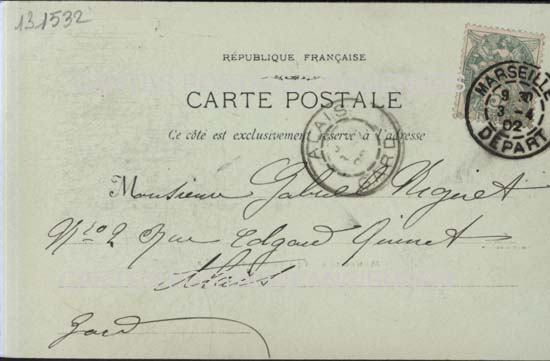 131532
RÉPUBLIQUE FRANÇAISE
CARTE POSTALE
Ce côté est exclusivement réservé à l'adresse
MARSEILLE
9
3 - 4
02
DÉPART
ALAIS
GARD
Monsieur Gabriel
No 2 Rue Edgard Quinet
Alais
Gard